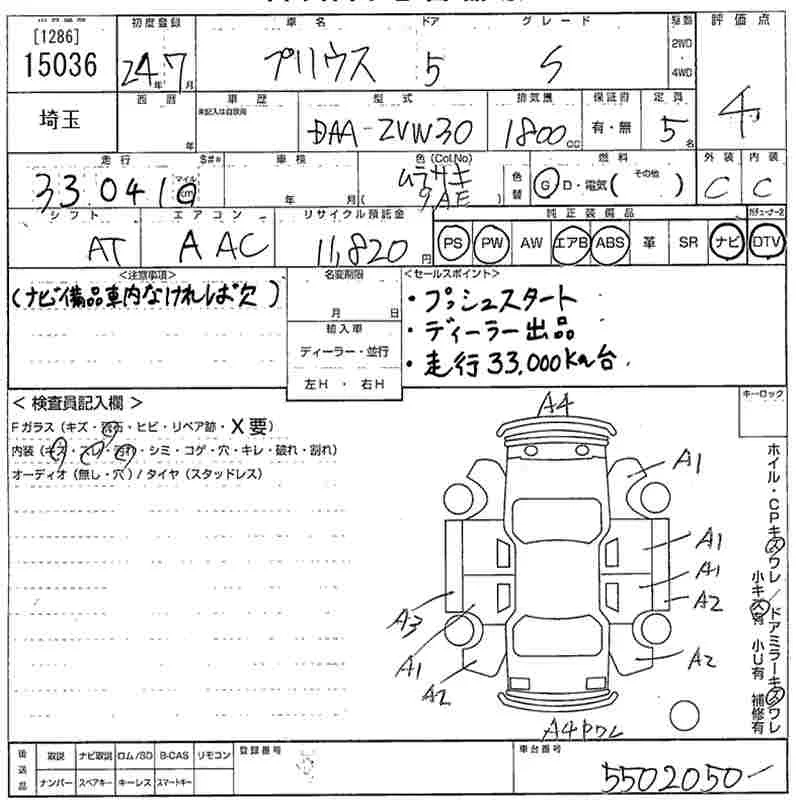 [1286]
15036
初度登録
24年7月
車名
プリウス
ドア
5
グレード
S
駆動
2WD
・
4WD
評価点
4
埼玉
西暦
年
車歴
未記入は自家用
型式
DAA-ZVW30
排気量
1800cc
保証書
有・無
定員
5名
外装
C
内装
C
走行
33,041
マイル
km
S#*
車検
年 月
色(Col.No)
ムラサキ
( 9AE )
色替
燃料
G D・電気(その他 )
シフト
AT
エアコン
AAC
リサイクル預託金
11,820円
純正装備品
PS PW AW エアB ABS 革 SR ナビ DTV
<注意事項>
(ナビ備品車内なければ欠)
名変期限
月 日
輸入車
ディーラー・並行
左H ・ 右H
<セールスポイント>
・プッシュスタート
・ディーラー出品
・走行33,000Km台.
< 検査員記入欄 >
Fガラス(キズ・飛石・ヒビ・リペア跡・X要)
内装(キズ・スレ・汚れ・シミ・コゲ・穴・キレ・破れ・割れ)
オーディオ(無し・穴)/タイヤ(スタッドレス)
キーロック
A4
A1
A1
A1
A2
A3
A1
A2
A2
A4ワレ
ホイル・CPキズワレ/ドアミラーキズワレ
小キズ有 小U有 補修有
後送品
取説 ナビ取説 ロム/SD B-CAS リモコン
ナンバー スペアキー キーレス スマートキー
登録番号
車台番号
5502050